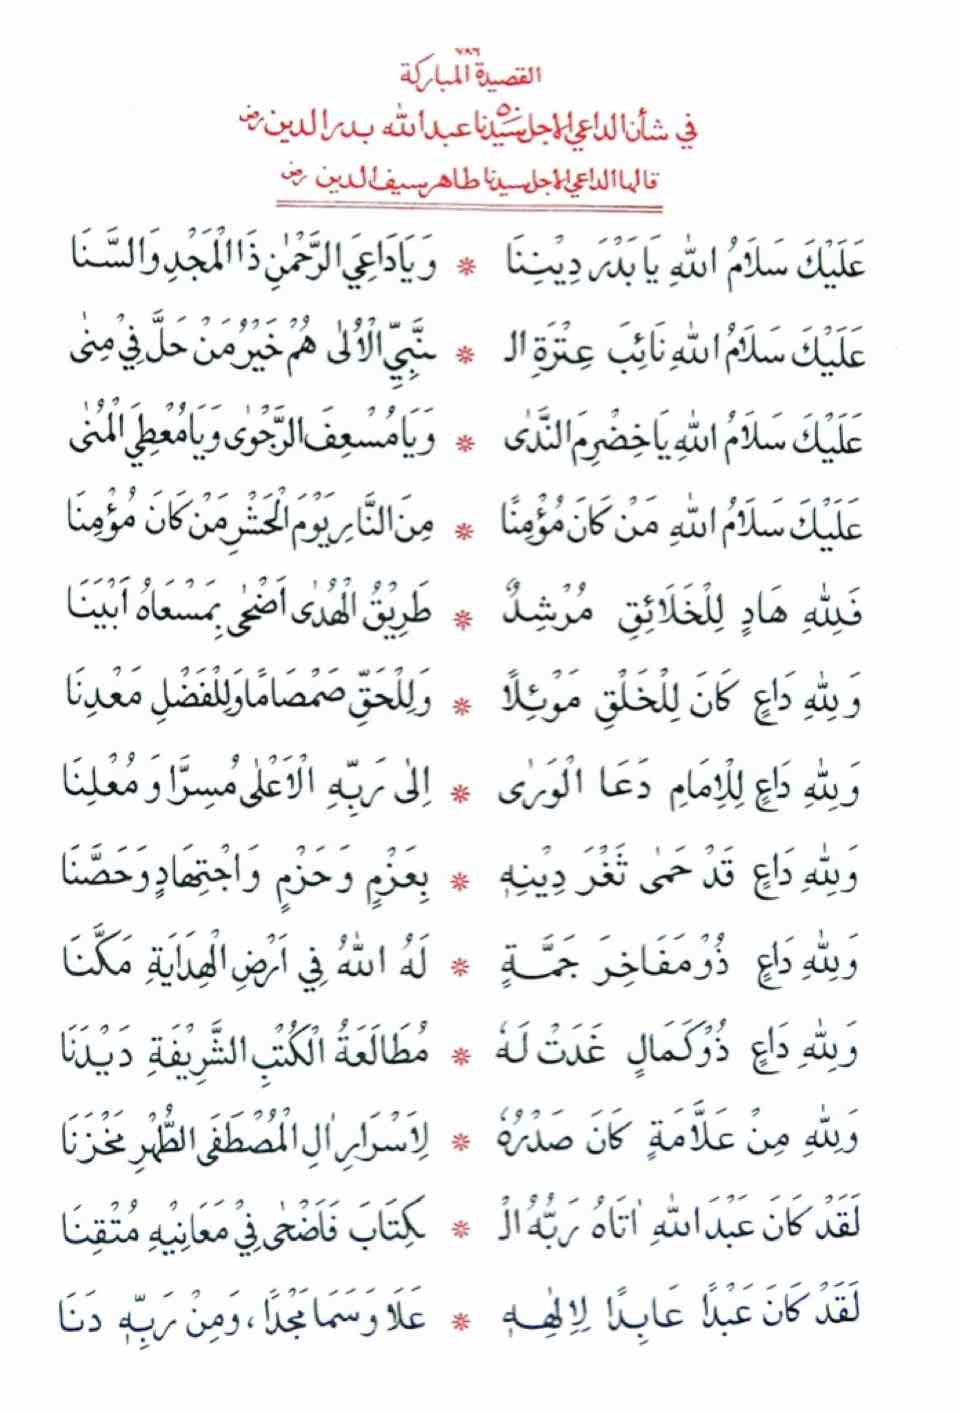 ٧٨٦
القصيدة المباركة
في شأن الداعي الاجل ٥٠ سيدنا عبد الله بدر الدين رض
قالها الداعي الاجل سيدنا طاهر سيف الدين رض
عَلَيْكَ سَلَامُ اللهِ يَا بَدْرَ دِيْنِنَا * وَيَا دَاعِيَ الرَّحْمٰنِ ذَا الْمَجْدِ وَالسَّنَا
عَلَيْكَ سَلَامُ اللهِ نَائِبَ عِتْرَةِ الـ * ـنَّبِيِّ الْاُلٰى هُمْ خَيْرُ مَنْ حَلَّ فِيْ مِنٰى
عَلَيْكَ سَلَامُ اللهِ يَا خِضْرِمَ النَّدٰى * وَيَا مُسْعِفَ الرَّجْوٰى وَيَا مُعْطِيَ الْمُنٰى
عَلَيْكَ سَلَامُ اللهِ مَنْ كَانَ مُؤْمِنًا * مِنَ النَّارِ يَوْمَ الْحَشْرِ مَنْ كَانَ مُؤْمِنَا
فَلِلّٰهِ هَادٍ لِلْخَلَائِقِ مُرْشِدٌ * طَرِيْقُ الْهُدٰى اَضْحٰى بِمَسْعَاهُ اَبْيَنَا
وَلِلّٰهِ دَاعٍ كَانَ لِلْخَلْقِ مَوْئِلًا * وَلِلْحَقِّ صَمْصَامًا وَلِلْفَضْلِ مَعْدِنَا
وَلِلّٰهِ دَاعٍ لِلْاِمَامِ دَعَا الْوَرٰى * اِلٰى رَبِّهِ الْاَعْلٰى مُسِرًّا وَمُعْلِنَا
وَلِلّٰهِ دَاعٍ قَدْ حَمٰى ثَغْرَ دِيْنِهٖ * بِعَزْمٍ وَحَزْمٍ وَاجْتِهَادٍ وَحَصَّنَا
وَلِلّٰهِ دَاعٍ ذُوْ مَفَاخِرَ جَمَّةٍ * لَهُ اللهُ فِي اَرْضِ الْهِدَايَةِ مَكَّنَا
وَلِلّٰهِ دَاعٍ ذُوْ كَمَالٍ غَدَتْ لَهٗ * مُطَالَعَةُ الْكُتْبِ الشَّرِيْفَةِ دَيْدَنَا
وَلِلّٰهِ مِنْ عَلَّامَةٍ كَانَ صَدْرُهٗ * لِاَسْرَارِ اٰلِ الْمُصْطَفَى الطُّهْرِ مَخْزَنَا
لَقَدْ كَانَ عَبْدَ اللهِ اٰتَاهُ رَبُّهُ الْـ * ـكِتَابَ فَاَضْحٰى فِيْ مَعَانِيْهِ مُتْقِنَا
لَقَدْ كَانَ عَبْدًا عَابِدًا لِاِلٰهِهٖ * عَلَا وَسَمَا مَجْدًا، وَمِنْ رَبِّهٖ دَنَا